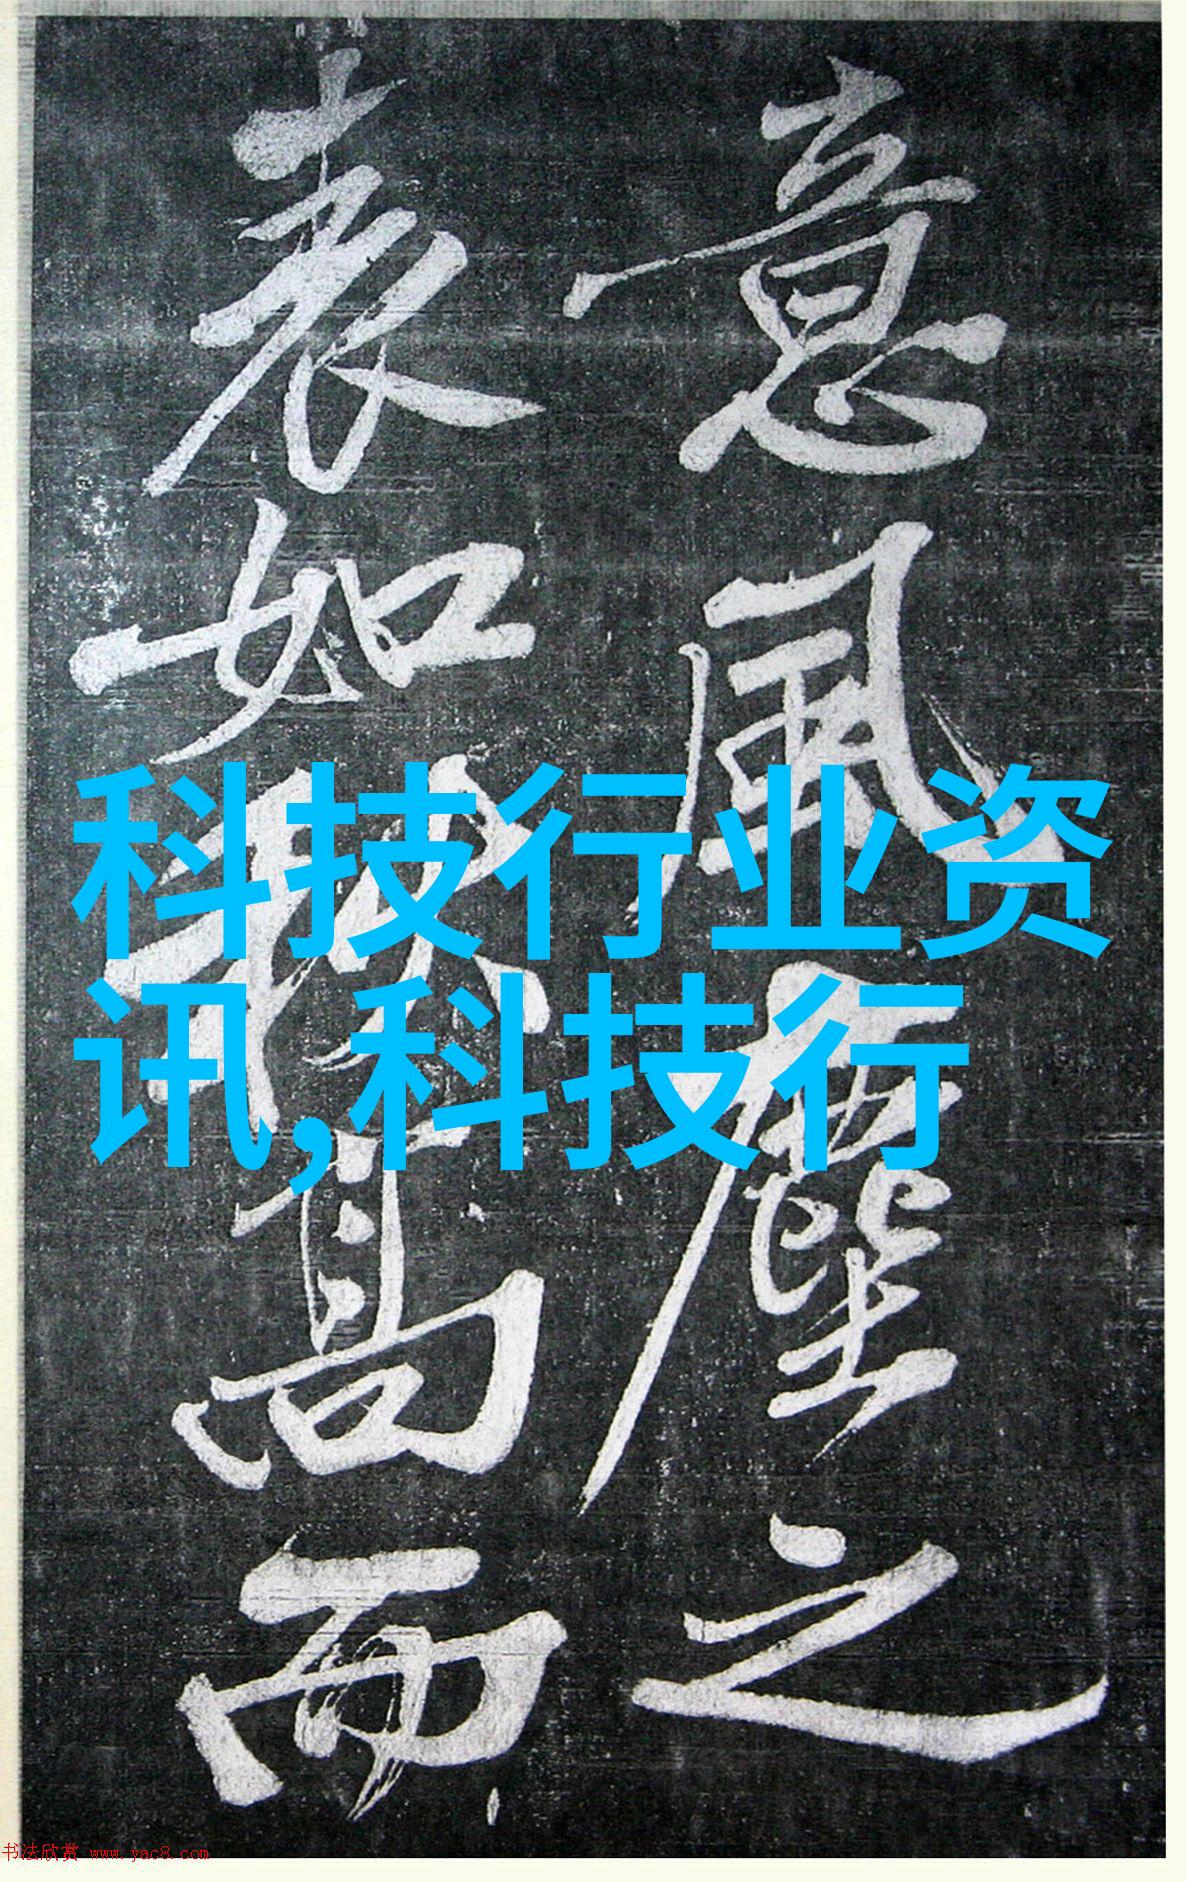 意風塵之
表如秋高而
科技行业资
讯,科技行
书法欣赏 www.yac8.com